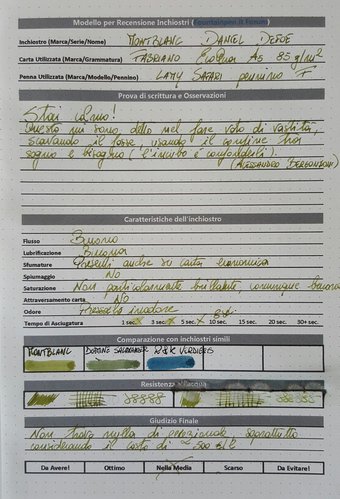 Modello per Recensione Inchiostri (Fountainpen.it Forum)
Inchiostro (Marca/Serie/Nome) MONTBLANC DANIEL DEFOE
Carta Utilizzata (Marca/Grammatura) FABRIANO EcoQua A5 85 g/m²
Penna Utilizzata (Marca/Modello/Pennino) LAMY SAFARI pennino "F"
Prova di scrittura e Osservazioni
Stai calmo!
Questo mi sono detto nel fare voto di vastità,
scavando il fosse, usando il confine tra
sogno e bisogno (l'incubo è confonderli).
(ALESSANDRO BERGONZONI)
Caratteristiche dell'inchiostro
Flusso Buono
Lubrificazione Buona
Sfumature Presenti anche su carta economica
Spiumaggio No
Saturazione Non particolarmente brillante, comunque buona
Attraversamento carta No
Odore Presso inodore
Tempo di Asciugatura 1 sec. 3 sec. 5 sec. 10 sec. 15 sec. 20 sec. 30+ sec.
Comparazione con inchiostri simili
MONTBLANC
Resistenza all'acqua
Giudizio Finale
Non trovo nulla di eccezionale soprattutto
considerando il costo di
Da Avere! Ottimo Nella Media Scarso Da Evitare!